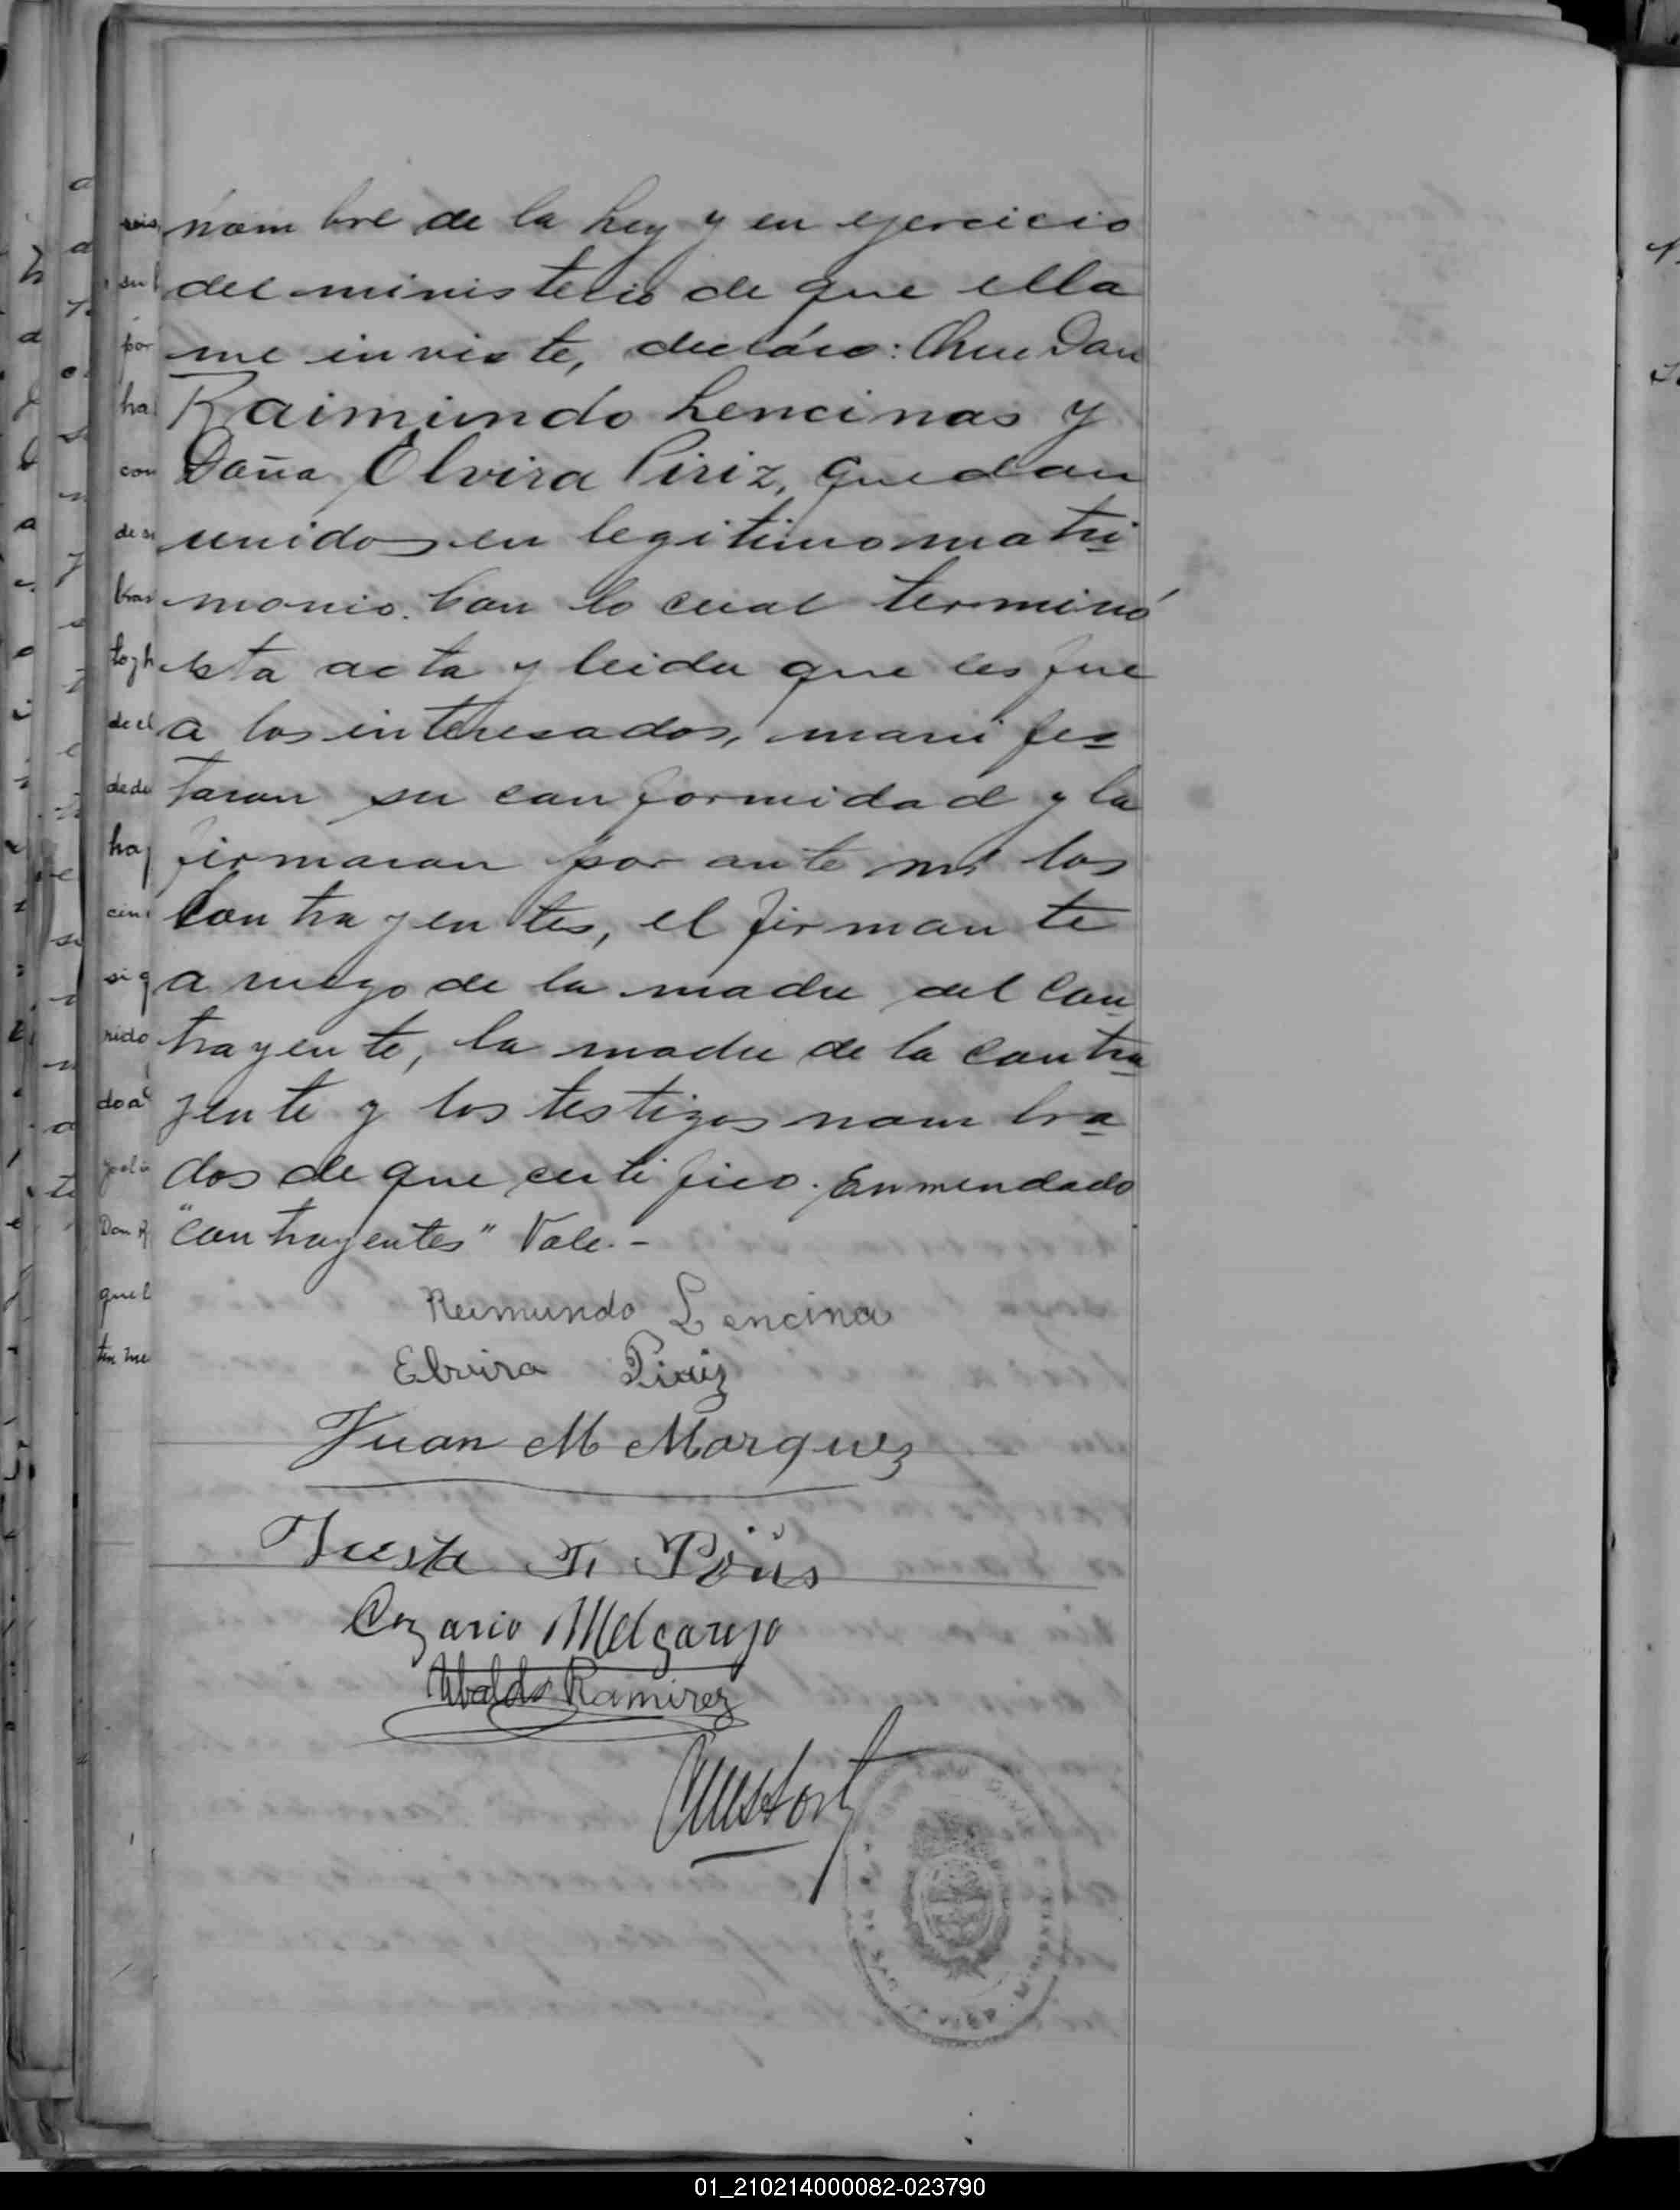 nombre de la Ley y en ejercicio
del ministerio de que ella
me inviste, decláro: Que Don
Raimundo Lencinas y
Doña Elvira Piriz, quedan
unidos en legitimo matri
monio. Con lo cual terminó
esta acta y leida que les fue
a los interesados, manifes
taron su conformidad y la
firmaron por ante mi los
Contrayentes, el firmante
a ruego de la madre del Con
trayente, la madre de la contra
yente y los testigos nombra
dos de que certifico. Enmendado
"contrayentes" Vale.-
Reimundo Lencina
Elvira Piriz
Juan M Marquez
Justa
Cezario Melgarejo
Ubaldo Ramirez
01_210214000082-023790